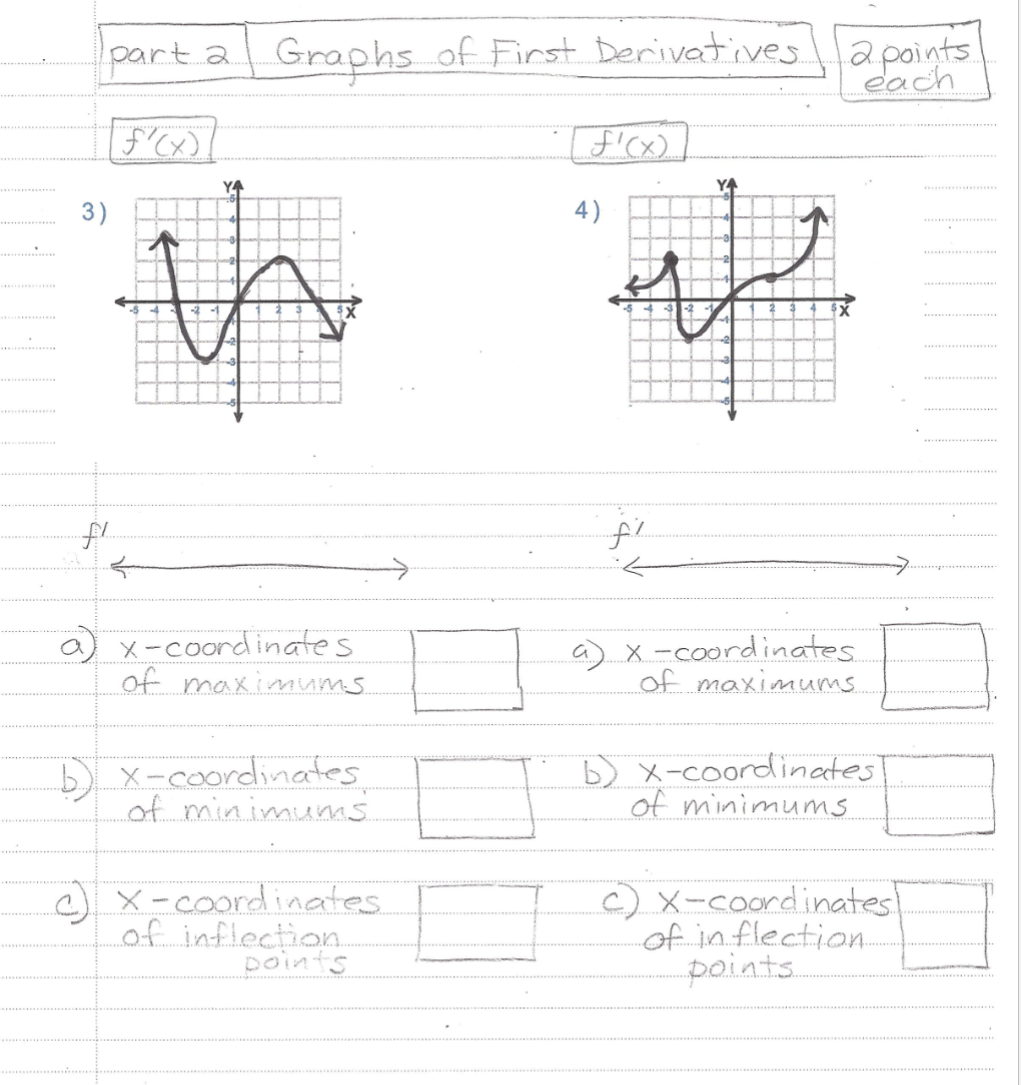 part 2 Graphs of First Derivatives 2 points each
f'(x) f'(x)
3) 4)
Y Y
5 5
4 4
3 3
2 2
1 1
-5 -4 -2 -1 1 2 3 5 X -5 -4 -3 -2 -1 1 2 3 4 5 X
-2 -2
-3 -3
-4 -4
-5 -5
f' f'
a) x-coordinates of maximums a) x-coordinates of maximums
b) x-coordinates of minimums b) x-coordinates of minimums
c) x-coordinates of inflection points c) x-coordinates of inflection points